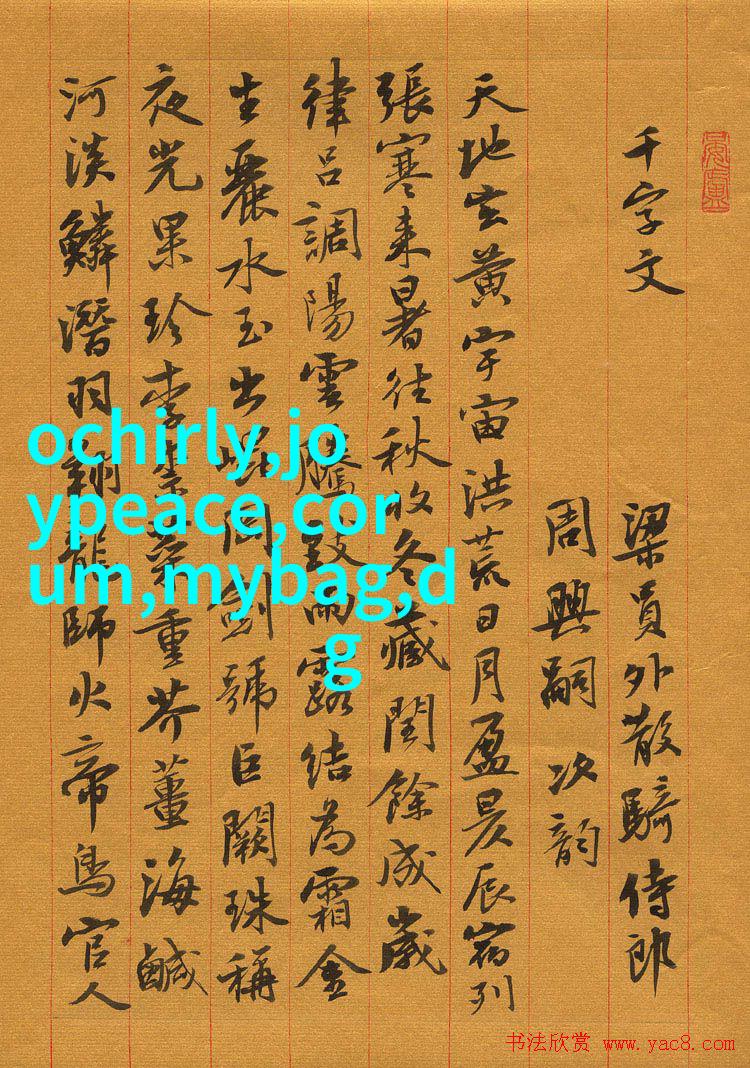 千字文
梁員外散騎侍郎
周興嗣次韵
天地玄黄宇宙洪荒日月盈昃辰宿列
張寒来暑往秋收冬藏閏餘成歲
律吕調陽雲騰致雨露結為霜金
生麗水玉出崐岡劍號巨闕珠稱
夜光果珍李柰菜重芥薑海鹹
河淡鱗潛羽翔龍師火帝鳥官人
ochirly,jo
ypeace,cor
um,mybag,d
g
书法欣赏 www.yac8.com